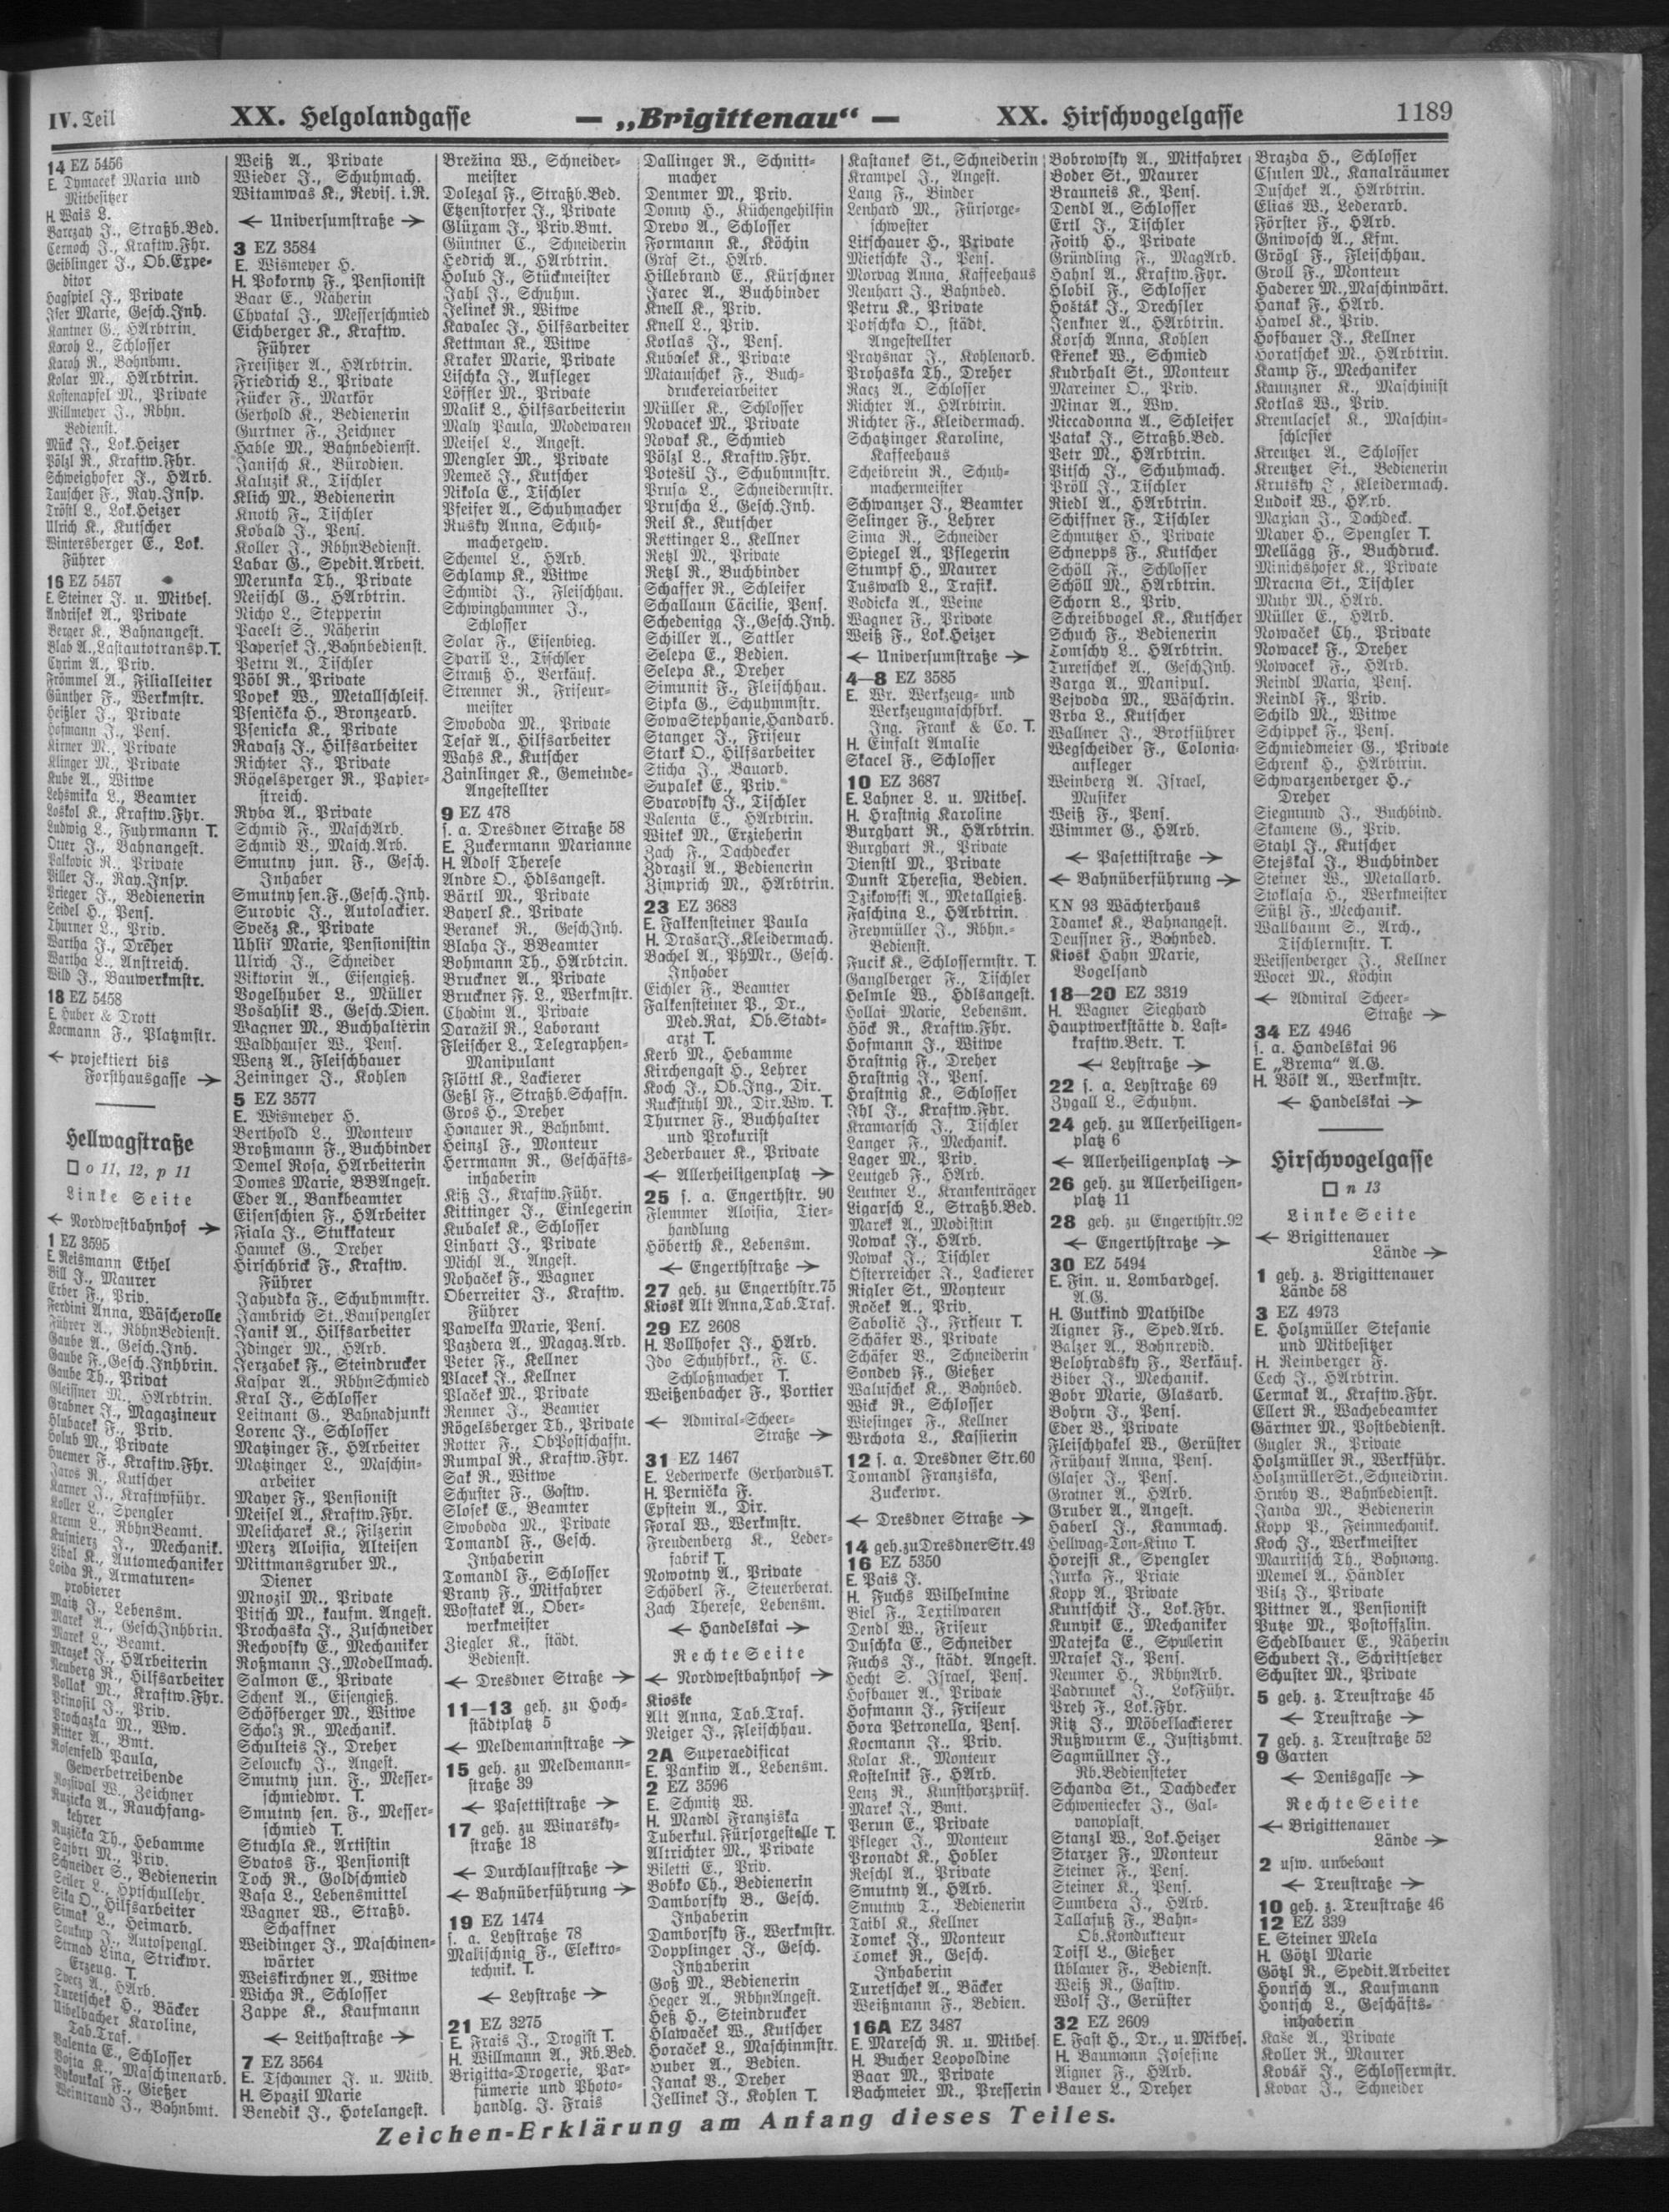 IV. Teil
XX. Helgolandgasse
— „Brigittenau“ —
XX. Hirschvogelgasse
1189
14 EZ 5456
E. Dymacek Maria und
Mitbesitzer
H. Wais L.
Barczay J., Straßb.Bed.
Cernoch J., Kraftw.Fhr.
Geiblinger J., Ob.Expe-
ditor
Hagspiel J., Private
Iser Marie, Gesch.Inh.
Kantner G., HArbtrin.
Karoh L., Schlosser
Karoh R., Bahnbmt.
Kolar M., HArbtrin.
Kostenapfel M., Private
Millmeyer J., Rbhn.
Bedienst.
Mück J., Lok.Heizer
Pölzl R., Kraftw.Fhr.
Schweighofer J., HArb.
Tauscher F., Ray.Insp.
Tröstl L., Lok.Heizer
Ulrich K., Kutscher
Wintersberger E., Lok.
Führer
16 EZ 5457
E. Steiner J. u. Mitbes.
Andrisek A., Private
Berger K., Bahnangest.
Blab A., Lastautotransp. T.
Cyrim A., Priv.
Frömmel A., Filialleiter
Günther F., Werkmstr.
Heißler J., Private
Hofmann J., Pens.
Kirner M., Private
Klinger M., Private
Kube A., Witwe
Lehsmika L., Beamter
Loskol K., Kraftw.Fhr.
Ludwig L., Fuhrmann T.
Otter J., Bahnangest.
Palkovic R., Private
Piller J., Ray.Insp.
Prieger J., Bedienerin
Seidel H., Pens.
Thurner L., Priv.
Wartha J., Dreher
Wartha L., Anstreich.
Wild J., Bauwerkmstr.
18 EZ 5458
E. Huber & Drott
Kocmann F., Platzmstr.
← projektiert bis
Forsthausgasse →
Hellwagstraße
□ o 11, 12, p 11
Linke Seite
← Nordwestbahnhof →
1 EZ 3595
E. Reismann Ethel
Bill J., Maurer
Erber F., Priv.
Ferdini Anna, Wäscherolle
Führer A., RbhnBedienst.
Gaube A., Gesch.Inh.
Gaube F., Gesch.Inhbrin.
Gaube Th., Privat
Gleissner M., HArbtrin.
Grabner J., Magazineur
Hlubacek F., Priv.
Holub M., Private
Huemer F., Kraftw.Fhr.
Jaros R., Kutscher
Karner J., Kraftwführ.
Koller L., Spengler
Krenn L., RbhnBeamt.
Kusnierz J., Mechanik.
Libal K., Automechaniker
Loida R., Armaturen-
probierer
Maitz J., Lebensm.
Marek A., GeschInhbrin.
Marek L., Beamt.
Mrazek J., HArbeiterin
Neuberg R., Hilfsarbeiter
Pollak M., Kraftw.Fhr.
Prinosil J., Priv.
Prochazka M., Ww.
Ritter A., Bmt.
Rosenfeld Paula,
Gewerbetreibende
Rozsival W., Zeichner
Ruzicka A., Rauchfang-
kehrer
Ruzička Th., Hebamme
Sajbrt M., Priv.
Schneider S., Bedienerin
Seiler L., Hptschullehr.
Sika O., Hilfsarbeiter
Simak L., Heimarb.
Soukup J., Autospengl.
Strnad Lina, Strickwr.
Erzeug. T.
Svecz A., HArb.
Turetschek H., Bäcker
Uibelbacher Karoline,
Tab.Traf.
Valenta E., Schlosser
Vojta K., Maschinenarb.
Vykoukal F., Gießer
Weintraud J., Bahnbmt.
Weiß A., Private
Wieder J., Schuhmach.
Witamwas K., Revis. i.R.
← Universumstraße →
3 EZ 3584
E. Wismeyer H.
H. Pokorny F., Pensionist
Baar E., Näherin
Chvatal J., Messerschmied
Eichberger K., Kraftw.
Führer
Freisitzer A., HArbtrin.
Friedrich L., Private
Fücker F., Markör
Gerhold K., Bedienerin
Gurtner F., Zeichner
Hable M., Bahnbedienst.
Janisch K., Bürodien.
Kaluzik K., Tischler
Klich M., Bedienerin
Knoth F., Tischler
Kobald J., Pens.
Koller J., RbhnBedienst.
Labar G., Spedit.Arbeit.
Merunka Th., Private
Neischl G., HArbtrin.
Nicho L., Stepperin
Pacelt S., Näherin
Papersek J., Bahnbedienst.
Petru A., Tischler
Pöbl R., Private
Popek W., Metallschleif.
Psenička H., Bronzearb.
Psenicka K., Private
Ravasz J., Hilfsarbeiter
Richter J., Private
Rögelsperger R., Papier-
streich.
Ryba A., Private
Schmid F., MaschArb.
Schmid V., Masch.Arb.
Smutny jun. F., Gesch.
Inhaber
Smutny sen. F., Gesch.Inh.
Surovic J., Autolackier.
Svečz K., Private
Uhlíř Marie, Pensionistin
Ulrich J., Schneider
Viktorin A., Eisengieß.
Vogelhuber L., Müller
Vosahlik V., Gesch.Dien.
Wagner M., Buchhalterin
Waldhauser W., Pens.
Wenz A., Fleischhauer
Zeininger J., Kohlen
5 EZ 3577
E. Wismeyer H.
Berthold L., Monteur
Broßmann F., Buchbinder
Demel Rosa, HArbeiterin
Domes Marie, BBAngest.
Eder A., Bankbeamter
Eisenschien F., HArbeiter
Fiala J., Stukkateur
Hannek G., Dreher
Hirschbrick F., Kraftw.
Führer
Jahudka F., Schuhmmstr.
Jambrich St., Bauspengler
Janik A., Hilfsarbeiter
Idinger M., HArb.
Jerzabek F., Steindrucker
Kaspar A., RbhnSchmied
Kral J., Schlosser
Leitnant G., Bahnadjunkt
Lorenc J., Schlosser
Matzinger F., HArbeiter
Matzinger L., Maschin-
arbeiter
Mayer F., Pensionist
Meisel A., Kraftw.Fhr.
Melicharek K., Filzerin
Merz Aloisia, Alteisen
Mittmansgruber M.,
Diener
Mnozil M., Private
Pitsch M., kaufm. Angest.
Prochaska J., Zuschneider
Rechovsky E., Mechaniker
Roßmann J., Modellmach.
Salmon E., Private
Schenk A., Eisengieß.
Schöfberger M., Witwe
Scholz R., Mechanik.
Schulteis J., Dreher
Seloucky J., Angest.
Smutny jun. F., Messer-
schmiedwr. T.
Smutny sen. F., Messer-
schmied T.
Stuchla K., Artistin
Svatos F., Pensionist
Toch R., Goldschmied
Vasa L., Lebensmittel
Wagner W., Straßb.
Schaffner
Weidinger J., Maschinen-
wärter
Weiskirchner A., Witwe
Wicha R., Schlosser
Zappe K., Kaufmann
← Leithastraße →
7 EZ 3564
E. Tschauner J. u. Mitb.
H. Spazil Marie
Benedik J., Hotelangest.
Brežina W., Schneider-
meister
Dolezal F., Straßb.Bed.
Etzenstorfer J., Private
Glüxam J., Priv.Bmt.
Güntner C., Schneiderin
Hedrich A., HArbtrin.
Holub J., Stückmeister
Jahl J., Schuhm.
Jelinek R., Witwe
Kavalec J., Hilfsarbeiter
Kettman K., Witwe
Kraker Marie, Private
Lischka J., Aufleger
Löffler M., Private
Malik L., Hilfsarbeiterin
Maly Paula, Modewaren
Meisel L., Angest.
Mengler M., Private
Nemeč J., Kutscher
Nikola E., Tischler
Pfeifer A., Schuhmacher
Rusky Anna, Schuh-
machergew.
Schemel L., HArb.
Schlamp K., Witwe
Schmidt J., Fleischhau.
Schwinghammer J.,
Schlosser
Solar F., Eisenbieg.
Sparil L., Tischler
Strauß H., Verkäuf.
Strenner R., Friseur-
meister
Swoboda M., Private
Tesař A., Hilfsarbeiter
Wahs K., Kutscher
Zainlinger K., Gemeinde-
Angestellter
9 EZ 478
s. a. Dresdner Straße 58
E. Zuckermann Marianne
H. Adolf Therese
Andre O., Hdlsangest.
Bärtl M., Private
Bayerl K., Private
Beranek R., GeschInh.
Blaha J., BBeamter
Bohmann Th., HArbtrin.
Bruckner A., Private
Bruckner F. L., Werkmstr.
Chadim A., Private
Daražil R., Laborant
Fleischer L., Telegraphen-
Manipulant
Flöttl K., Lackierer
Geßl F., Straßb.Schaffn.
Gros H., Dreher
Hanauer R., Bahnbmt.
Heinzl F., Monteur
Herrmann R., Geschäfts-
inhaberin
Kiß J., Kraftw.Führ.
Kittinger J., Einlegerin
Kubalek K., Schlosser
Linhart J., Private
Michl A., Angest.
Nohaček F., Wagner
Oberreiter J., Kraftw.
Führer
Pawelka Marie, Pens.
Pazdera A., Magaz.Arb.
Peter F., Kellner
Placek J., Kellner
Plaček M., Private
Renner J., Beamter
Rögelsberger Th., Private
Rotter F., ObPostschaffn.
Rumpal R., Kraftw.Fhr.
Sak R., Witwe
Schuster F., Gastw.
Slosek E., Beamter
Swoboda M., Private
Tomandl F., Gesch.
Inhaberin
Tomandl F., Schlosser
Vrany F., Mitfahrer
Wostatek A., Ober-
werkmeister
Ziegler K., städt.
Bedienst.
← Dresdner Straße →
11—13 geh. zu Hoch-
städtplatz 5
← Meldemannstraße →
15 geh. zu Meldemann-
straße 39
← Pasettistraße →
17 geh. zu Winarsky-
straße 18
← Durchlaufstraße →
← Bahnüberführung →
19 EZ 1474
s. a. Leystraße 78
Malischnig F., Elektro-
technik. T.
← Leystraße →
21 EZ 3275
E. Frais J., Drogist T.
H. Willmann A., Rb.Bed.
Brigitta-Drogerie, Par-
fümerie und Photo-
handlg. J. Frais
Dallinger R., Schnitt-
macher
Demmer M., Priv.
Donny H., Küchengehilfin
Drevo A., Schlosser
Formann K., Köchin
Graf St., HArb.
Hillebrand E., Kürschner
Jarec A., Buchbinder
Knell K., Priv.
Knell L., Priv.
Kotlas J., Pens.
Kubalek K., Private
Matauschek F., Buch-
druckereiarbeiter
Müller K., Schlosser
Novacek M., Private
Novak K., Schmied
Pölzl L., Kraftw.Fhr.
Potešil J., Schuhmmstr.
Prusa L., Schneidermstr.
Pruscha L., Gesch.Inh.
Reil K., Kutscher
Rettinger L., Kellner
Retzl M., Private
Retzl R., Buchbinder
Schaffer R., Schleifer
Schallaun Cäcilie, Pens.
Schedenigg J., Gesch.Inh.
Schiller A., Sattler
Selepa E., Bedien.
Selepa K., Dreher
Simunit F., Fleischhau.
Sipka G., Schuhmmstr.
Sowa Stephanie, Handarb.
Stanger J., Friseur
Stark O., Hilfsarbeiter
Sticha J., Bauarb.
Supalek E., Priv.
Svarovsky J., Tischler
Valenta E., HArbtrin.
Witek M., Erzieherin
Zach F., Dachdecker
Zdrazil A., Bedienerin
Zimprich M., HArbtrin.
23 EZ 3683
E. Falkensteiner Paula
H. Drašar J., Kleidermach.
Bachel A., PhMr., Gesch.
Inhaber
Eichler F., Beamter
Falkensteiner P., Dr.,
Med.Rat, Ob.Stadt-
arzt T.
Kerb M., Hebamme
Kirchengast H., Lehrer
Koch J., Ob.Ing., Dir.
Ruckstuhl M., Dir.Ww. T.
Thurner F., Buchhalter
und Prokurist
Zederbauer K., Private
← Allerheiligenplatz →
25 s. a. Engerthstr. 90
Flemmer Aloisia, Tier-
handlung
Höberth K., Lebensm.
← Engerthstraße →
27 geh. zu Engerthstr. 75
Kiosk Alt Anna, Tab.Traf.
29 EZ 2608
H. Vollhofer J., HArb.
Ido Schuhfbrk., F. C.
Schloßmacher T.
Weißenbacher F., Portier
← Admiral-Scheer-
Straße →
31 EZ 1467
E. Lederwerke Gerhardus T.
H. Pernička F.
Epstein A., Dir.
Foral W., Werkmstr.
Freudenberg K., Leder-
fabrik T.
Nowotny A., Private
Schöberl F., Steuerberat.
Zach Therese, Lebensm.
← Handelskai →
Rechte Seite
← Nordwestbahnhof →
Kioske
Alt Anna, Tab.Traf.
Neiger J., Fleischhau.
2A Superaedificat
E. Pankiw A., Lebensm.
2 EZ 3596
E. Schmitz W.
H. Mandl Franziska
Tuberkul. Fürsorgestelle T.
Altrichter M., Private
Biletti E., Priv.
Bobko Ch., Bedienerin
Damborsky B., Gesch.
Inhaberin
Damborsky F., Werkmstr.
Dopplinger J., Gesch.
Inhaberin
Goß M., Bedienerin
Heger A., RbhnAngest.
Heß H., Steindrucker
Hlawaček W., Kutscher
Horaček L., Maschinmstr.
Huber A., Bedien.
Janak V., Dreher
Jellinek J., Kohlen T.
Kastanek St., Schneiderin
Krampel J., Angest.
Lang F., Binder
Lenhard M., Fürsorge-
schwester
Litschauer H., Private
Mietschke J., Pens.
Morwag Anna, Kaffeehaus
Neuhart J., Bahnbed.
Petru K., Private
Potschka O., städt.
Angestellter
Praysnar J., Kohlenarb.
Prohaska Th., Dreher
Racz A., Schlosser
Richter A., HArbtrin.
Richter F., Kleidermach.
Schatzinger Karoline,
Kaffeehaus
Scheibrein R., Schuh-
machermeister
Schwanzer J., Beamter
Selinger F., Lehrer
Sima R., Schneider
Spiegel A., Pflegerin
Stumpf H., Maurer
Tuswald L., Trafik.
Vodicka A., Weine
Wagner F., Private
Weiß F., Lok.Heizer
← Universumstraße →
4—8 EZ 3585
E. Wr. Werkzeug- und
Werkzeugmaschfbrk.
Ing. Frank & Co. T.
H. Einfalt Amalie
Skacel F., Schlosser
10 EZ 3687
E. Lahner L. u. Mitbes.
H. Hrastnig Karoline
Burghart R., HArbtrin.
Burghart R., Private
Dienstl M., Private
Dunst Theresia, Bedien.
Dzikowski A., Metallgieß.
Fasching L., HArbtrin.
Freymüller J., Rbhn.-
Bedienst.
Fucik K., Schlossermstr. T.
Ganglberger F., Tischler
Helmle W., Hdlsangest.
Hollai Marie, Lebensm.
Höck R., Kraftw.Fhr.
Hofmann J., Witwe
Hrastnig F., Dreher
Hrastnig J., Pens.
Hrastnig K., Schlosser
Ihl J., Kraftw.Fhr.
Kramarsch J., Tischler
Langer F., Mechanik.
Lager M., Priv.
Leutgeb F., HArb.
Leutner L., Krankenträger
Ligarsch L., Straßb.Bed.
Marek A., Modistin
Nowak J., HArb.
Nowak J., Tischler
Österreicher J., Lackierer
Rigler St., Monteur
Roček A., Priv.
Sabolič J., Friseur T.
Schäfer V., Private
Schäfer V., Schneiderin
Sondey F., Gießer
Waluschek K., Bahnbed.
Wick R., Schlosser
Wiesinger F., Kellner
Wrchota L., Kassierin
12 s. a. Dresdner Str. 60
Tomandl Franziska,
Zuckerwr.
← Dresdner Straße →
14 geh. zu Dresdner Str. 49
16 EZ 5350
E. Pais J.
H. Fuchs Wilhelmine
Biel F., Textilwaren
Dendl W., Friseur
Duschka E., Schneider
Fuchs J., städt. Angest.
Hecht S. Israel, Pens.
Hofbauer A., Private
Hofmann J., Friseur
Hora Petronella, Pens.
Kocmann J., Priv.
Kolar K., Monteur
Kostelnik F., HArb.
Lenz R., Kunstharzprüf.
Marek J., Bmt.
Perun E., Private
Pfleger J., Monteur
Pronadt K., Hobler
Reschl A., Private
Smutny A., HArb.
Smutny T., Bedienerin
Taibl K., Kellner
Tomek J., Monteur
Tomek R., Gesch.
Inhaberin
Turetschek A., Bäcker
Weißmann F., Bedien.
16A EZ 3487
E. Maresch R. u. Mitbes.
H. Bucher Leopoldine
Baar M., Private
Bachmeier M., Presserin
Bobrowsky A., Mitfahrer
Boder St., Maurer
Brauneis K., Pens.
Dendl A., Schlosser
Ertl J., Tischler
Foith H., Private
Gründling F., MagArb.
Hahnl A., Kraftw.Fhr.
Hlobil F., Schlosser
Hošták J., Drechsler
Jenkner A., HArbtrin.
Korsch Anna, Kohlen
Křenek W., Schmied
Kudrhalt St., Monteur
Mareiner O., Priv.
Minar A., Ww.
Niccadonna A., Schleifer
Patak J., Straßb.Bed.
Petr M., HArbtrin.
Pitsch J., Schuhmach.
Pröll J., Tischler
Riedl A., HArbtrin.
Schiffner F., Tischler
Schmutzer H., Private
Schnepps F., Kutscher
Schöll F., Schlosser
Schöll M., HArbtrin.
Schorn L., Priv.
Schreibvogel K., Kutscher
Schuch F., Bedienerin
Tomschy L., HArbtrin.
Turetschek A., GeschInh.
Varga A., Manipul.
Vejvoda M., Wäschrin.
Vrba L., Kutscher
Wallner J., Brotführer
Wegscheider F., Colonia-
aufleger
Weinberg A. Israel,
Musiker
Weiß F., Pens.
Wimmer G., HArb.
← Pasettistraße →
← Bahnüberführung →
KN 93 Wächterhaus
Adamek K., Bahnangest.
Deussner F., Bahnbed.
Kiosk Hahn Marie,
Vogelsand
18—20 EZ 3319
H. Wagner Sieghard
Hauptwerkstätte d. Last-
kraftw.Betr. T.
← Leystraße →
22 s. a. Leystraße 69
Zygall L., Schuhm.
24 geh. zu Allerheiligen-
platz 6
← Allerheiligenplatz →
26 geh. zu Allerheiligen-
platz 11
28 geh. zu Engerthstr. 92
← Engerthstraße →
30 EZ 5494
E. Fin. u. Lombardges.
A.G.
H. Gutkind Mathilde
Aigner F., Sped.Arb.
Balzer A., Bahnrevid.
Belohradsky F., Verkäuf.
Biber J., Mechanik.
Bobr Marie, Glasarb.
Bohrn J., Pens.
Eder V., Private
Fleischhakel W., Gerüster
Frühauf Anna, Pens.
Glaser J., Pens.
Gratner A., HArb.
Gruber A., Angest.
Haberl J., Kammach.
Hellwag-Ton-Kino T.
Horejsi K., Spengler
Jurka F., Priate
Kopp A., Private
Kuntschik J., Lok.Fhr.
Kunyik E., Mechaniker
Matejka E., Spulerin
Mrasek J., Pens.
Neumer H., RbhnArb.
Padrunek J., LokFühr.
Preh F., Lok.Fhr.
Ritz J., Möbellackierer
Rußwurm E., Justizbmt.
Sagmüllner J.,
Rb.Bediensteter
Schanda St., Dachdecker
Schweniecker J., Gal-
vanoplast.
Stanzl W., Lok.Heizer
Starzer F., Monteur
Steiner F., Pens.
Steiner K., Pens.
Sumbera J., HArb.
Tallafuß F., Bahn-
Ob.Kondukteur
Toifl L., Gießer
Üblauer F., Bedienst.
Weiß R., Gastw.
Wolf J., Gerüster
32 EZ 2609
E. Fast H., Dr., u. Mitbes.
H. Baumann Josefine
Aigner F., HArb.
Bauer L., Dreher
Brazda H., Schlosser
Csulen M., Kanalräumer
Duschek A., HArbtrin.
Elias W., Lederarb.
Förster F., HArb.
Gniwosch A., Kfm.
Grögl F., Fleischhau.
Groll F., Monteur
Haderer M., Maschinwärt.
Hanak F., HArb.
Hawel K., Priv.
Hofbauer J., Kellner
Horatschek M., HArbtrin.
Kamp F., Mechaniker
Kaunzner K., Maschinist
Kotlas W., Priv.
Kremlacsek K., Maschin-
schlosser
Kreutzer A., Schlosser
Kreutzer St., Bedienerin
Krutsky J., Kleidermach.
Ludoik W., HArb.
Maxian J., Dachdeck.
Mayer H., Spengler T.
Mellägg F., Buchdruck.
Minichshofer K., Private
Mracna St., Tischler
Muhr M., HArb.
Müller E., HArb.
Nowaček Ch., Private
Nowacek F., Dreher
Nowacek F., HArb.
Reindl Maria, Pens.
Reindl F., Priv.
Schild M., Witwe
Schippek F., Pens.
Schmiedmeier G., Private
Schrenk H., HArbtrin.
Schwarzenberger H.,
Dreher
Siegmund J., Buchbind.
Skamene G., Priv.
Stahl J., Kutscher
Stejskal J., Buchbinder
Steiner W., Metallarb.
Stoklasa H., Werkmeister
Süßl F., Mechanik.
Wallbaum S., Arch.,
Tischlermstr. T.
Weissenberger J., Kellner
Wocet M., Köchin
← Admiral Scheer-
Straße →
34 EZ 4946
s. a. Handelskai 96
E. „Brema“ A.G.
H. Völk A., Werkmstr.
← Handelskai →
Hirschvogelgasse
□ n 13
Linke Seite
← Brigittenauer
Lände →
1 geh. z. Brigittenauer
Lände 58
3 EZ 4973
E. Holzmüller Stefanie
und Mitbesitzer
H. Reinberger F.
Cech J., HArbtrin.
Cermak A., Kraftw.Fhr.
Ellert R., Wachebeamter
Gärtner M., Postbedienst.
Gugler R., Private
Holzmüller R., Werkführ.
Holzmüller St., Schneidrin.
Hruby V., Bahnbedienst.
Janda M., Bedienerin
Kopp P., Feinmechanik.
Koch J., Werkmeister
Mauritsch Th., Bahnang.
Memel A., Händler
Pilz J., Private
Pittner A., Pensionist
Putze M., Postoffzlin.
Schedlbauer E., Näherin
Schubert J., Schriftsetzer
Schuster M., Private
5 geh. z. Treustraße 45
← Treustraße →
7 geh. z. Treustraße 52
9 Garten
← Denisgasse →
Rechte Seite
← Brigittenauer
Lände →
2 usw. unbebaut
← Treustraße →
10 geh. z. Treustraße 46
12 EZ 339
E. Steiner Mela
H. Götzl Marie
Götzl R., Spedit.Arbeiter
Honisch A., Kaufmann
Hontsch L., Geschäfts-
inhaberin
Kaše A., Private
Koller R., Maurer
Kovář J., Schlossermstr.
Kovar J., Schneider
Zeichen-Erklärung am Anfang dieses Teiles.